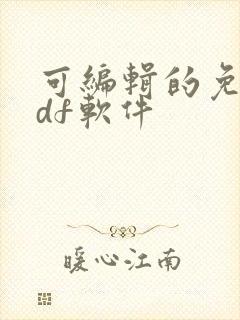 可編輯的免
df軟件
暖心江南